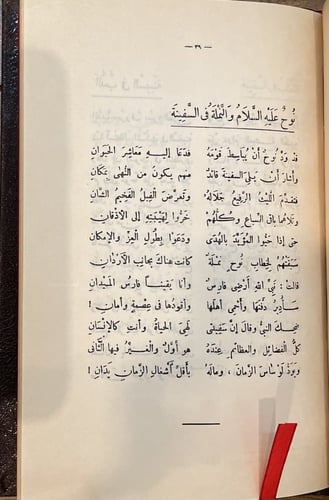 - ٣٩ -
نُوحٌ عَلَيْهِ السَّلَامُ وَالنَّمْلَةُ فى السَّفِينَةِ
قَد وَدَّ نُوحٌ أَنْ يُبَاسِطَ قَوْمَهُ فَدَعا إِليهِ مَعَاشِرَ الحَيَوانِ
وأَشارَ أَنْ يَلِيَ السفينةَ قَائدٌ مِنهم يكونُ من النُّهَى بِمَكانِ
فتقدَّمَ الليثُ الرفيعُ جَلالُهُ وتعرَّضَ الفيلُ الفَخيمُ الشَّانِ
وتَلاهُما باقى السِّباعِ وَكُلُّهم خَرُّوا لِهَيْبَتِهِ إلى الأَذْقانِ
حتى إِذا حَيَّوُا المُؤَيَّدَ بِالهُدَى ودَعَوْا بِطُولِ العِزِّ والإِمكانِ
سَبَقَتْهُمُ لخِطابِ نُوحٍ نَمْلَةٌ كانت هناكَ بجانِبِ الأَرْدَانِ
قالت: نَبِىَّ اللهِ أَرْضِى فارِسٌ وأنا يَقيناً فارسُ المَيْدانِ
سَأُدِيرُ دِفَّتَها، وَأَحْمِى أَهلَها وأَقودُها فى عِصْمَةٍ وأَمانِ !
ضحِكَ النبىُّ وقالَ إنّ سَفِينَتى لَهِىَ الحياةُ وأنتِ كالإِنسانِ
كلُّ الفَضَائِلِ والعظائمِ عِندَهُ هو أوّلٌ والغَيْرُ فيها الثَّانى
ويَوَدُّ لَوْ ساسَ الزمانَ، ومالَهُ بأَقلِّ أَشغالِ الزمانِ يَدَانِ !